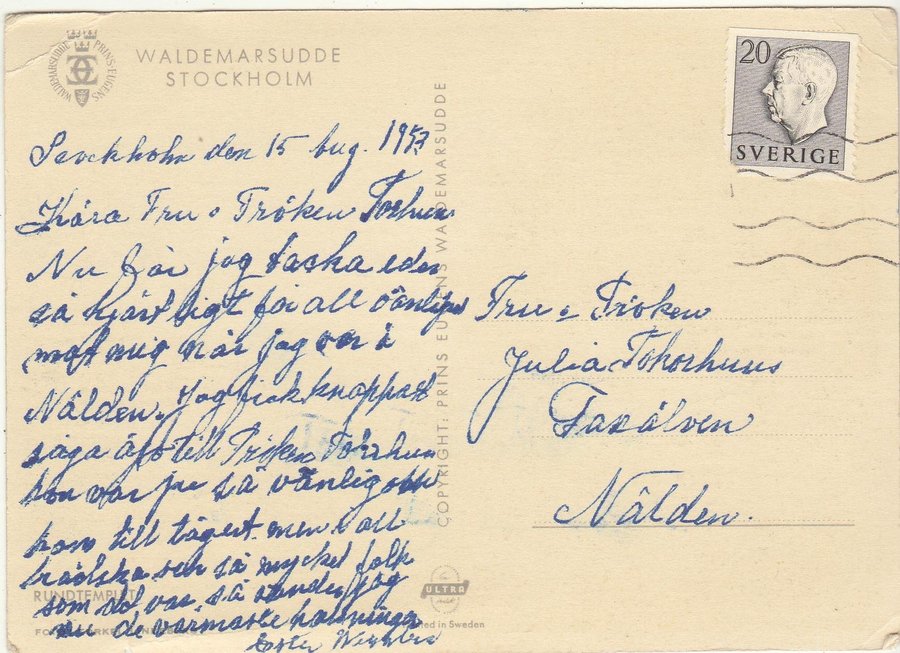 WALDEMARSUDDE PRINS EUGENS
WALDEMARSUDDE
STOCKHOLM
Stockholm den 15 aug. 1953
Kära Fru o Fröken
Nu får jag tacka eder
så hjärtligt för all vänlighet
mot mig när jag var i
Nälden. Jag fick knappast
säga äjö till Fröken
hon var ju så vänlig och
kom till tåget men i all
brådska och så mycket folk
som det var så sänder jag
nu de varmaste hälsningar
Ester
RUNDTEMPLET
COPYRIGHT: PRINS EUGENS WALDEMARSUDDE
ULTRA
Printed in Sweden
20
SVERIGE
Fru o Fröken
Julia
Faxälven
Nälden.